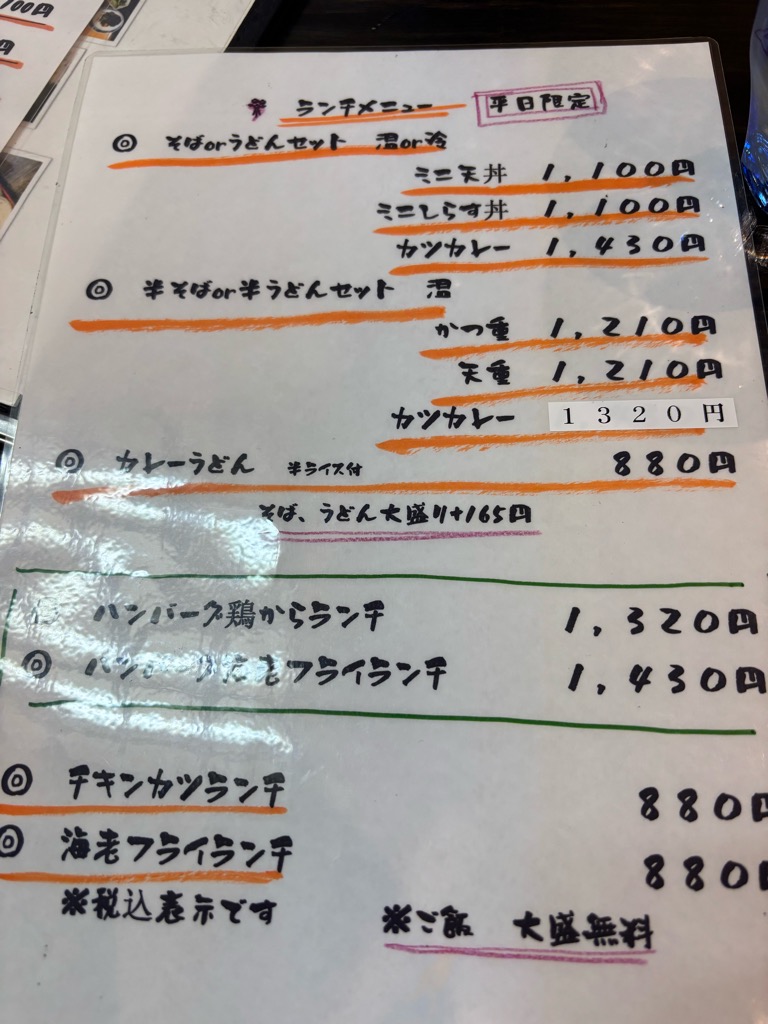 100円
円
※ ランチメニュー 平日限定
◎ そばorうどんセット 温or冷
ミニ天丼 1,100円
ミニしらす丼 1,100円
カツカレー 1,430円
◎ 半そばor半うどんセット 温
かつ重 1,210円
天重 1,210円
カツカレー 1320円
◎ カレーうどん 半ライス付 880円
そば、うどん大盛り+165円
◎ ハンバーグ鶏からランチ 1,320円
◎ ハンバーグ海老フライランチ 1,430円
◎ チキンカツランチ 880円
◎ 海老フライランチ 880円
※税込表示です
※ご飯 大盛無料